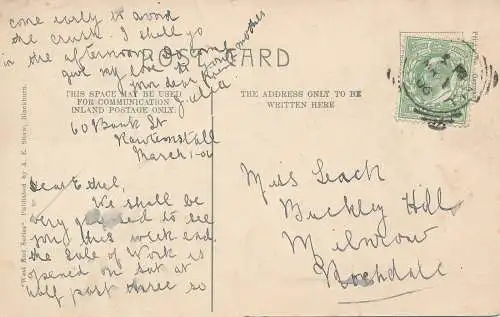 POST CARD
THIS SPACE MAY BE USED
FOR COMMUNICATION
INLAND POSTAGE ONLY.
THE ADDRESS ONLY TO BE
WRITTEN HERE
60 Bank St
Rawtenstall
March 1-06
Dear Ethel,
We shall be
very pleased to see
you this week end.
the Sale of Work is
opened on Sat at
half past three so
come early to avoid
the crush. I shall go
in the afternoon. Do come
give my love to
your dear Grandmother
Julia
Miss Leach
Buckley Hill
Milnrow
Rochdale
"West End Series" Published by A. E. Shaw, Blackburn.